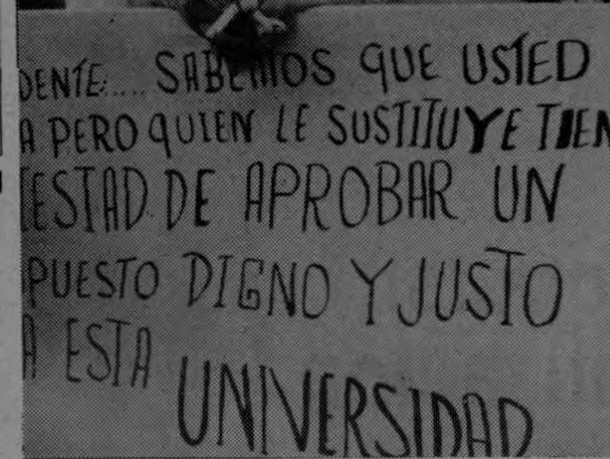 DENTE:.... SABEMOS QUE USTED
A PERO QUIEN LE SUSTITUYE TIEN
ESTAD DE APROBAR UN
PUESTO DIGNO Y JUSTO
A ESTA
UNIVERSIDAD